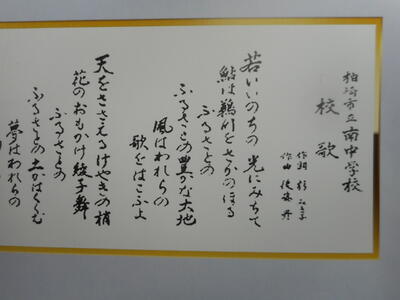 柏崎市立南中学校
校歌
作詞
作曲
若いいのちの光にみちて
鮎は鵜川をさかのぼる
ふるさとの
ふるさとの豊かな大地
風はわれらの
歌をはこぶよ
天をささえるけやきの梢
花のおもかげ綾子舞
ふるさとの
ふるさとの土がはぐくむ
夢はわれらの